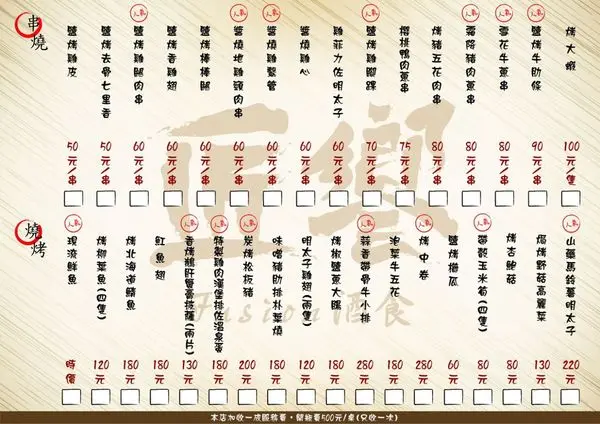 串燒
鹽烤雞皮 50元/串
鹽烤去骨七里香 50元/串
人氣 鹽烤雞腿肉串 60元/串
鹽烤香雞翅 60元/串
鹽烤棒棒腿 60元/串
人氣 醬燒地雞頸肉串 60元/串
人氣 醬燒雞 管 60元/串
醬燒雞心 60元/串
雞菲力佐明太子 60元/串
人氣 鹽烤雞腳 70元/串
櫻桃鴨肉蔥串 75元/串
烤豬五花肉串 80元/串
人氣 霜降豬肉蔥串 80元/串
人氣 雪花牛蔥串 80元/串
人氣 鹽烤牛肋條 90元/串
烤大蝦 100元/隻
燒烤
人氣 現流鮮魚 時價
烤柳葉魚(四隻) 120元
烤北海道鯖魚 180元
魟魚翅 180元
人氣 香烤鵝肝醬高披薩(兩片) 130元
人氣 特製雞肉漢堡排佐溫泉蛋 180元
人氣 炭烤松板豬 200元
味噌豬肋排朴葉燒 180元
明太子雞翅(兩隻) 120元
烤椒鹽蔥大腸 180元
人氣 蒜香帶骨牛小排 280元
泡菜牛五花 180元
人氣 烤中卷 280元
鹽烤櫛瓜 60元
人氣 帶殼玉米筍(四隻) 80元
烤杏鮑菇 80元
焗烤野菇高麗菜 130元
人氣 山藥馬鈴薯明太子 220元
Fusion 酒食
本店加收一成服務費，開瓶費500元/桌(只收一次)